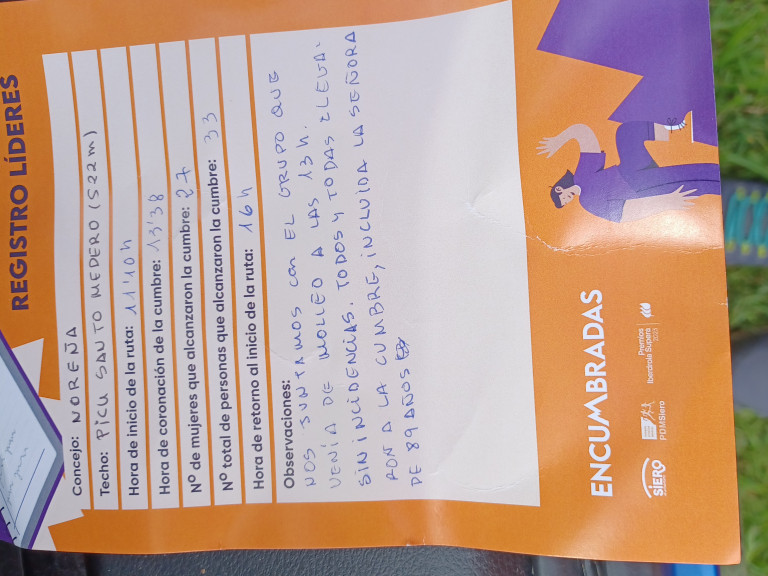 REGISTRO LÍDERES
Concejo: NOREÑA
Techo: PICU SANTO MEDERO (522m)
Hora de inicio de la ruta: 11'10h
Hora de coronación de la cumbre: 13'38
Nº de mujeres que alcanzaron la cumbre: 27
Nº total de personas que alcanzaron la cumbre: 33
Hora de retorno al inicio de la ruta: 16h
Observaciones:
NOS JUNTAMOS con EL GRUPO QUE
VENÍA DE MOLLEO A LAS 13h.
SIN INCIDENCIAS. TODOS Y TODAS LLEGA-
RON A LA CUMBRE, INCLUIDA LA SEÑORA
DE 89 AÑOS
ENCUMBRADAS
SIERO
PDMSiero
Premios
Iberdrola Supera
2023